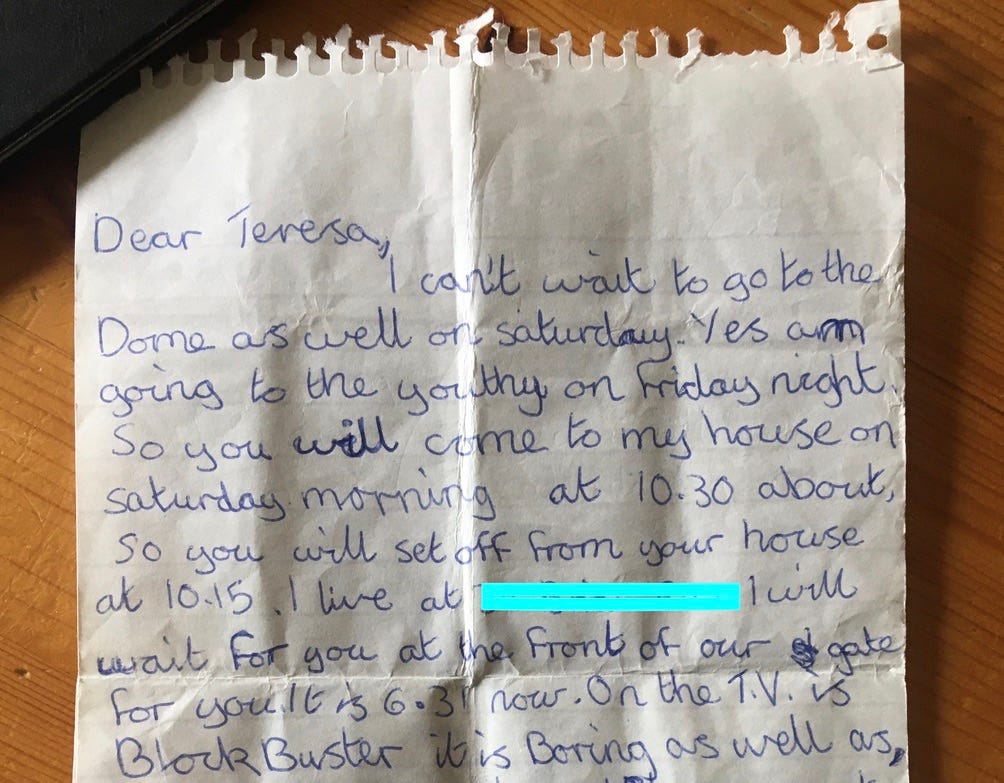 Dear Teresa,
I can't wait to go to the
Dome as well on saturday. Yes am
going to the youthy on Friday night.
So you will come to my house on
saturday morning at 10.30 about,
So you will set off from your house
at 10.15. I live at I will
wait for you at the front of our gate
for you. It is 6.31 now. On the T.V. is
BlockBuster it is Boring as well as,